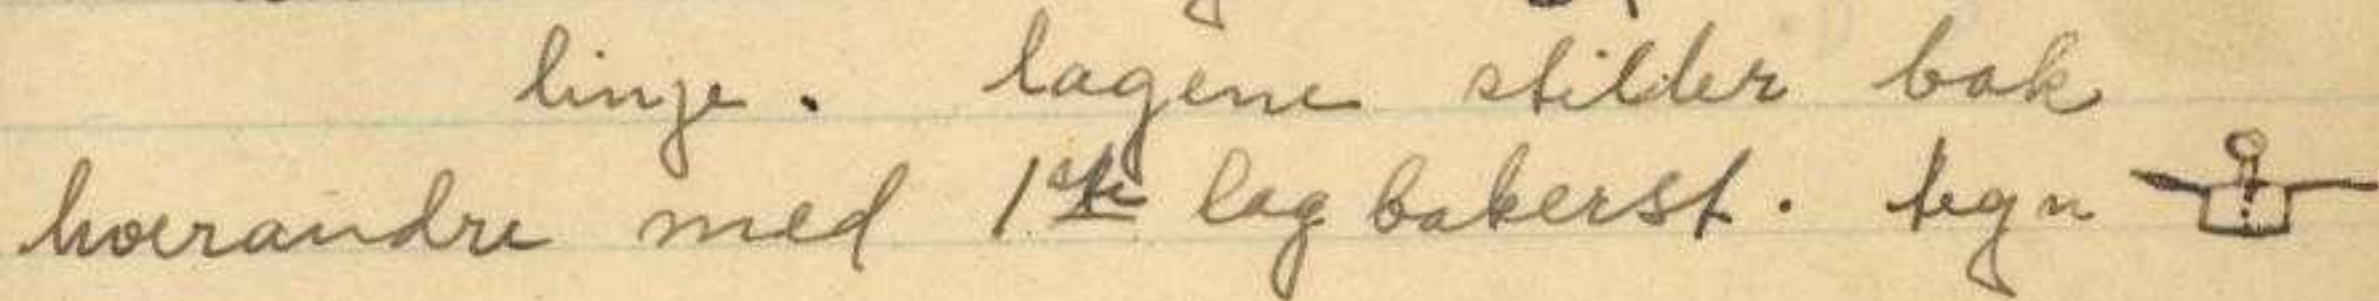 linje. lagene stilder bak
hverandre med 1ste lag bakerst. tegn